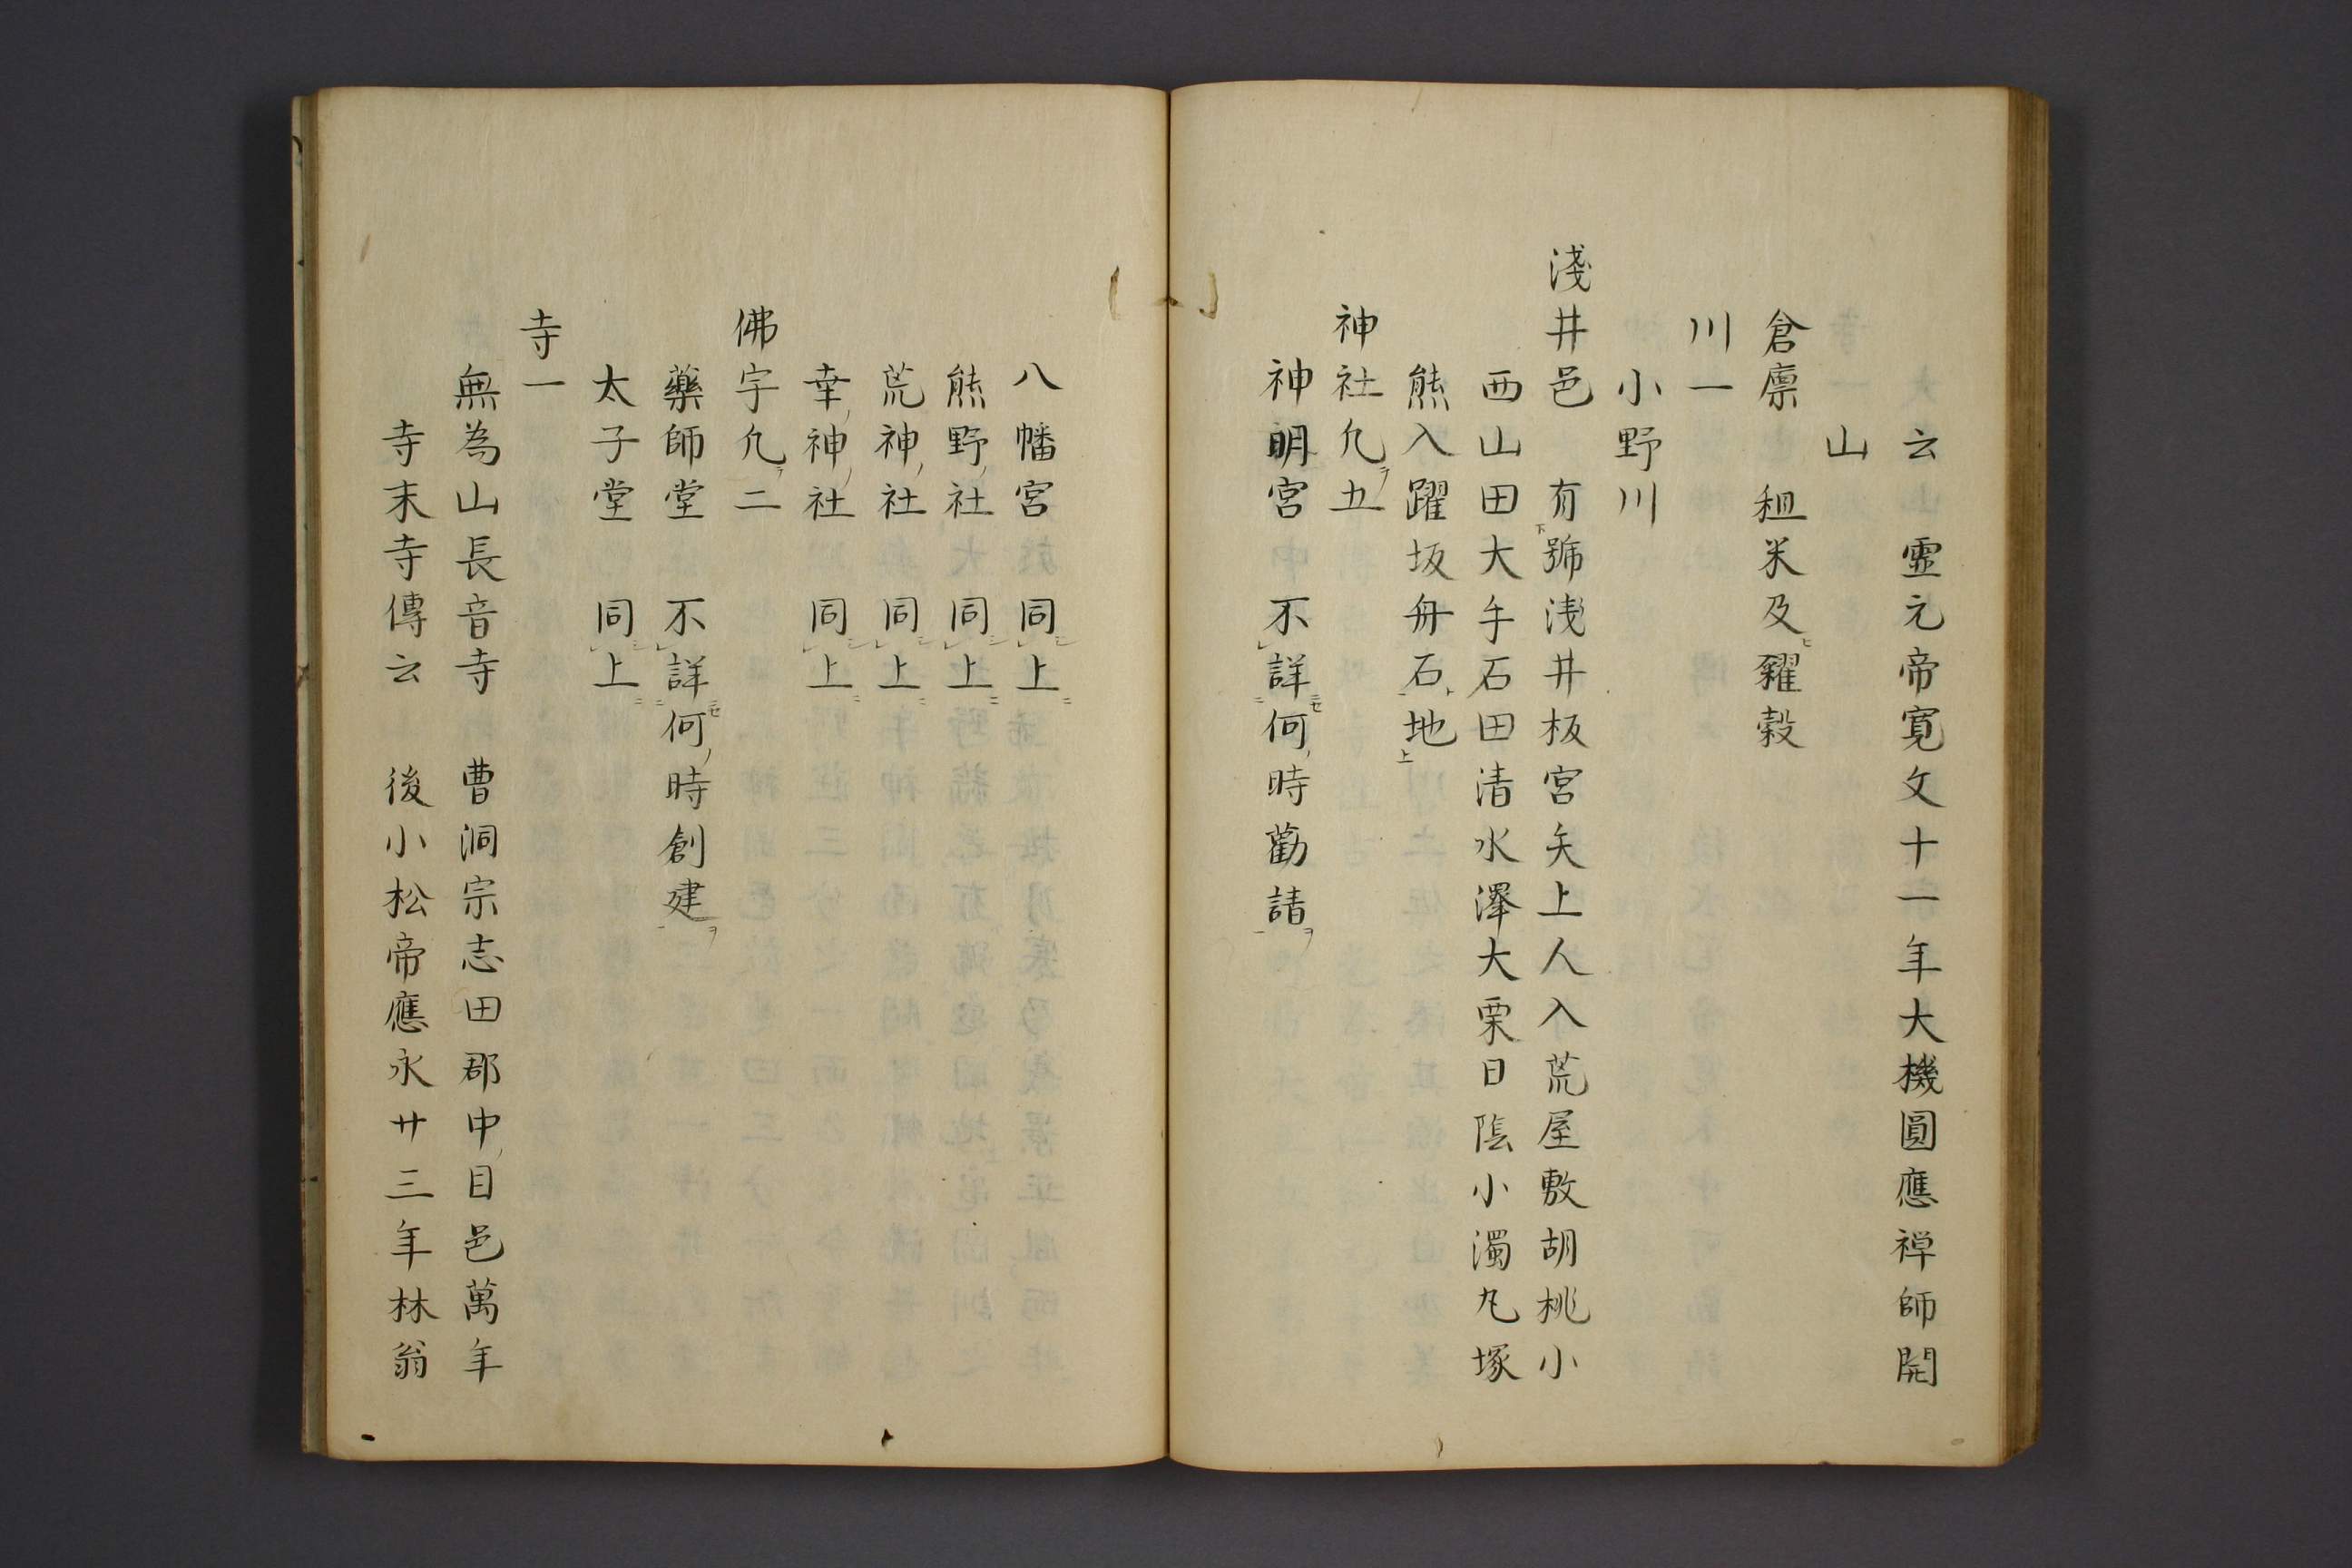 云　霊元帝寛文十一年大機圓應禅師開
山
倉廪　租米及糴穀
川一
小野川
淺井邑　有號浅井板宮矢上人入荒屋敷胡桃小
西山田大手石田清水澤大栗日陰小濁丸塚
熊入躍坂舟石地
神社凢五
神明宮　不詳何時勸請
八幡宮　同上
熊野社　同上
荒神社　同上
幸神社　同上
佛宇凢二
藥師堂　不詳何時創建
太子堂　同上
寺一
無為山長音寺　曹洞宗志田郡中目邑萬年
寺末寺傳云　後小松帝應永廿三年林翁